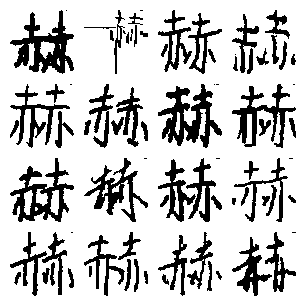 赫赫赫赫
赫赫赫赫
赫赫赫赫
赫赫赫赫